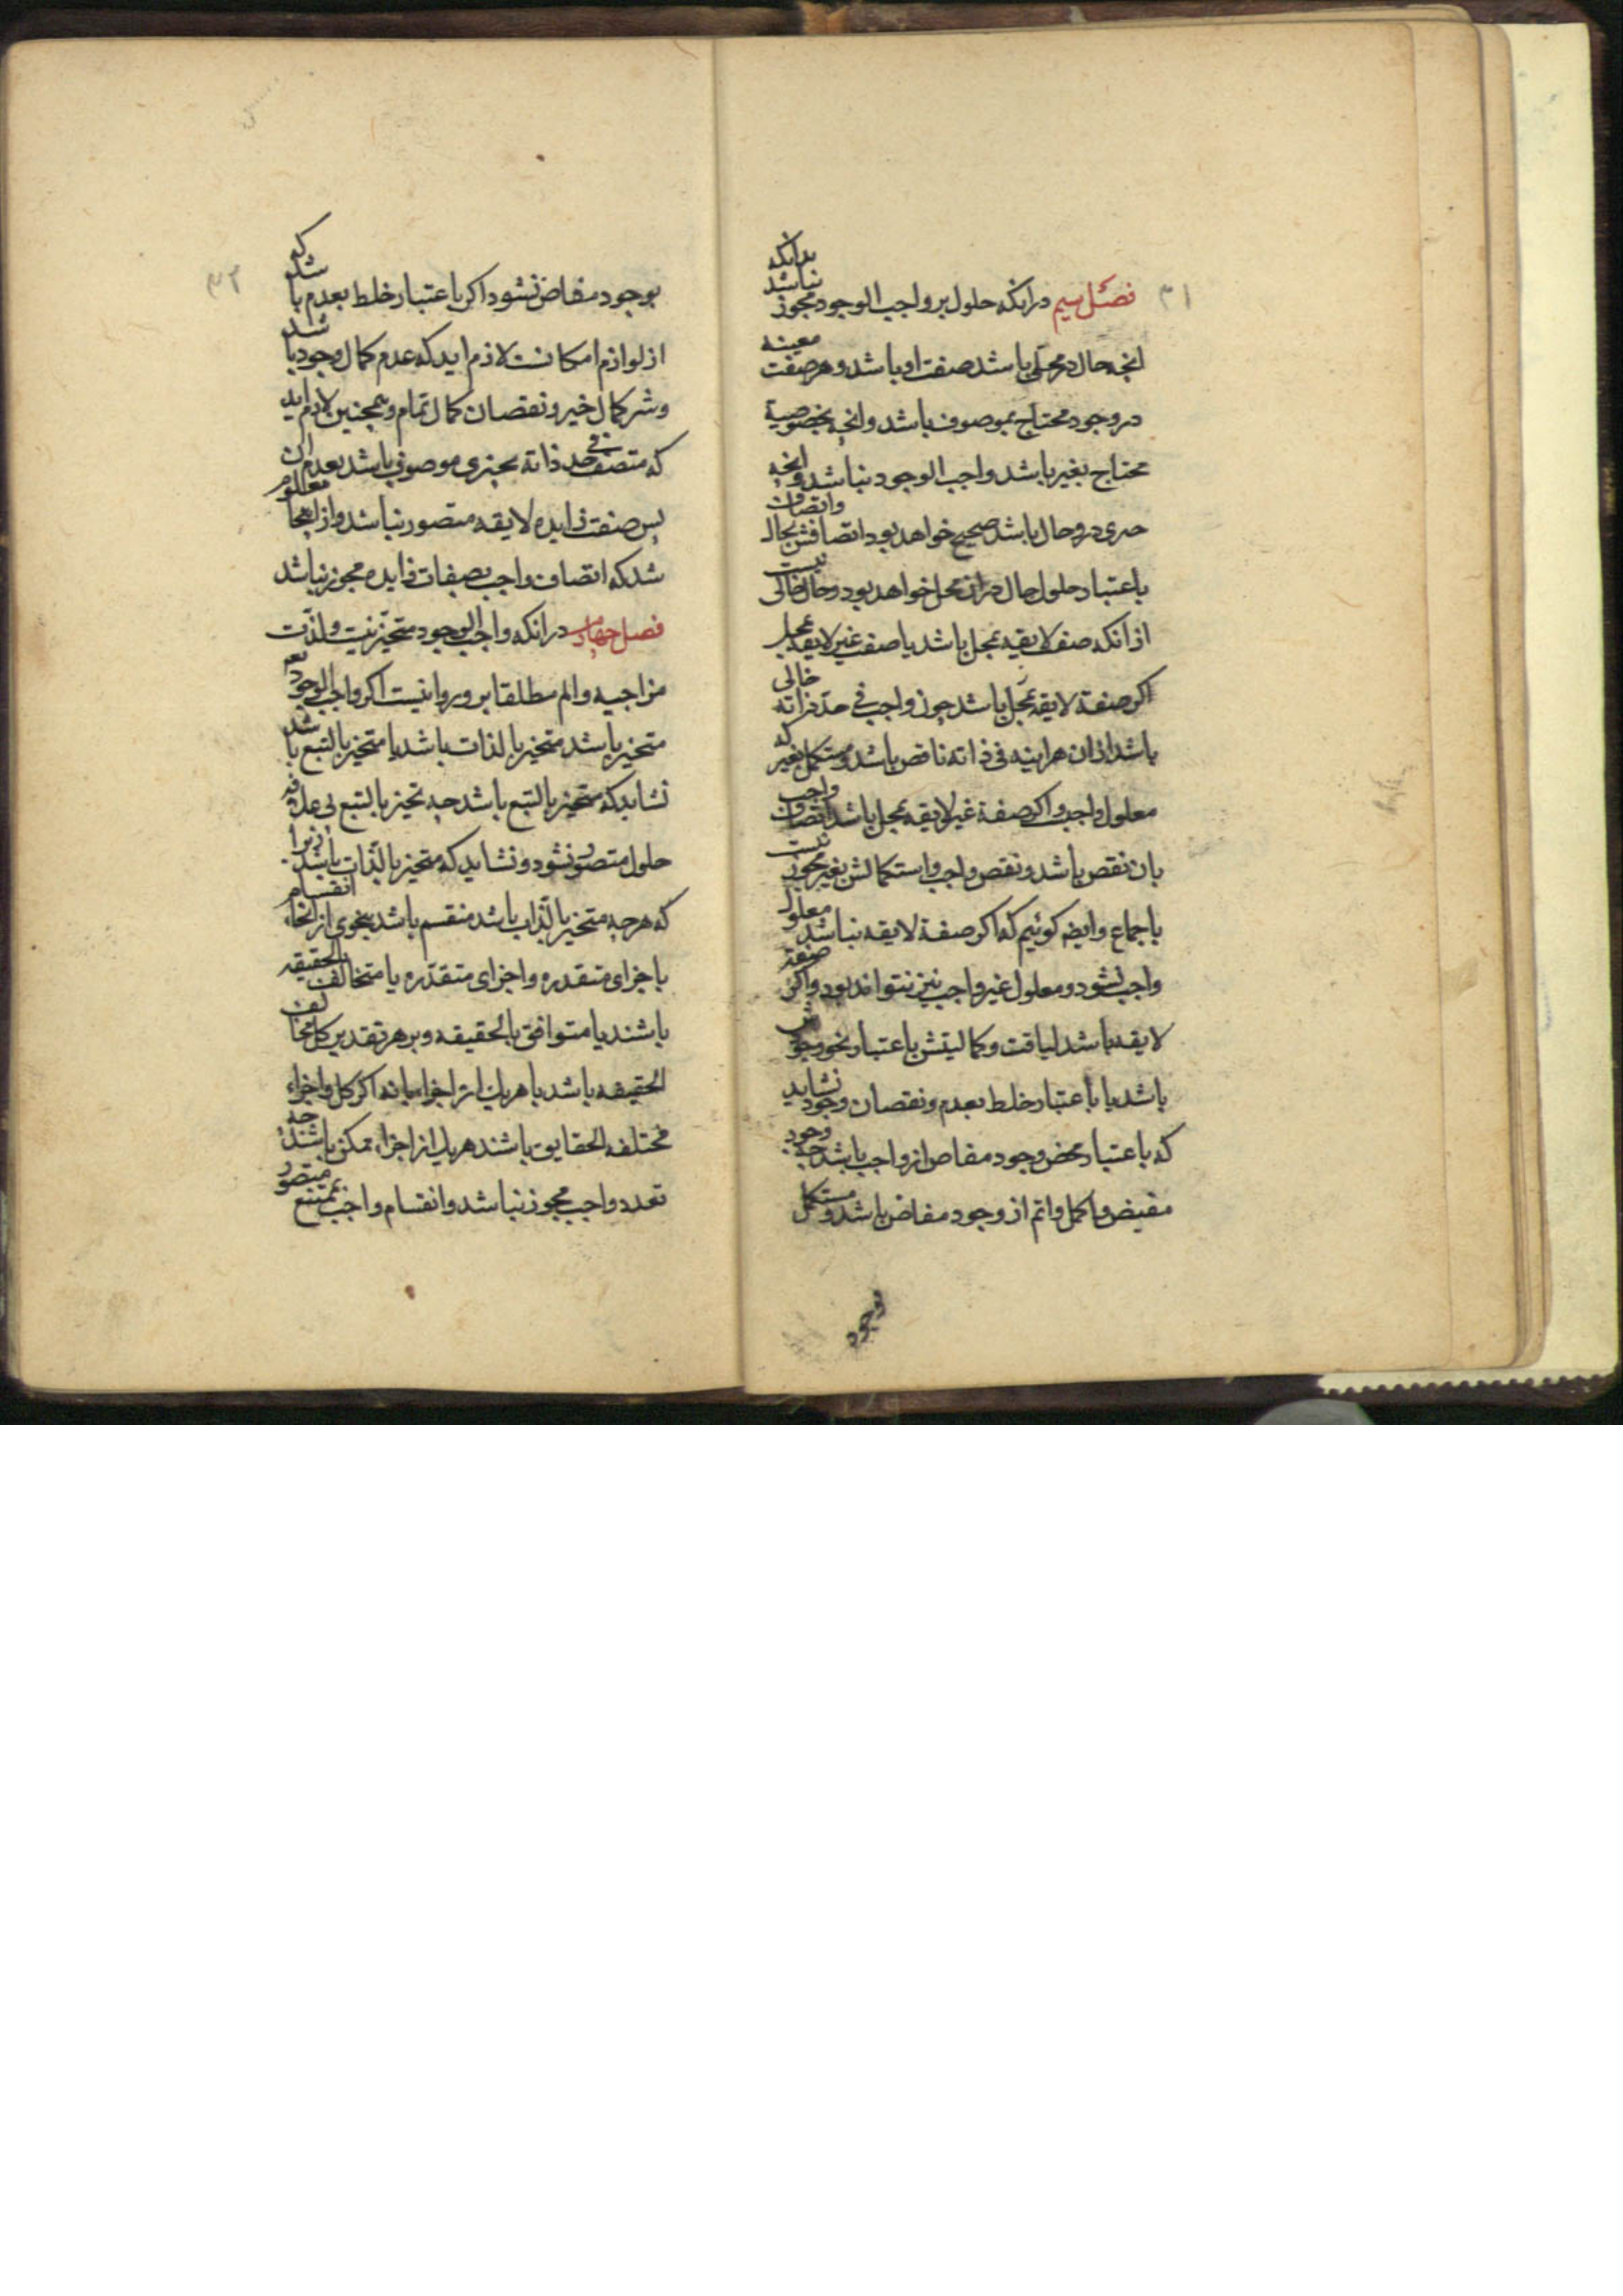 ۳۱
فصل سیم درانکه حلول بر واجب الوجود مجوز نباشد بدانکه
انچه حال در محلی باشد صفت او باشد و هر صفت معینه
در وجود محتاج بموصوف باشد و انچه بخصوصیة
محتاج بغیر باشد واجب الوجود نباشد و انچه
در و حال باشد صحیح خواهد بود اتصافش بحال و اتصاف
باعتبار حلول حال دران محل خواهد بود و حال خالی نیست
از انکه صفة لایقه بمحل باشد یا صفت غیر لایقه بمحل
اکر صفة لایقه بمحل باشد چون واجب فی حد ذاته خالی
باشد ازان هراینه فی ذاته ناقص باشد و مستکمل بغیر که
معلول واجب و اکر صفة غیر لایقه بمحل باشد اتصاف واجب
بان نقص باشد و نقص واجب و استکمالش بغیر مجوز نیست
باجماع و ایضه کوئیم که اکر صفة لایقه نباشد معلول
واجب نشود و معلول غیر واجب نیز نتواند بود و اکر صفة
لایقه باشد لیاقت و کمالیتش باعتبار نحو وجودش
باشد یا باعتبار خلط بعدم و نقصان وجود نشاید
که باعتبار محض وجود مفاض از واجب باشد چه وجود
مفیض و اکمل و اتم از وجود مفاض باشد و مستکمل
بوجود
۳۲
بوجود مفاض نشود اکر باعتبار خلط بعدم باشد که
از لوازم امکانست لازم اید که عدم کمال وجود باشد
و شر کمال خیر و نقصان کمال تمام و همچنین لازم اید
که متصف فی حد ذاته بچیزی موصوف باشد بعدم ان
پس صفت زایده لایقه متصور نباشد و از اینجا معلوم
شد که اتصاف واجب بصفات زایده مجوز نباشد
فصل چهارم درانکه واجب الوجود متحیز نیست و لذت
مزاجیه و الم مطلقا بر و روا نیست اکر واجب الوجود
متحیز باشد متحیز بالذات باشد یا متحیز بالتبع باشد
نشاید که متحیز بالتبع باشد چه تحیز بالتبع بی علاقه
حلول متصور نشود و نشاید که متحیز بالذات باشد زیرا
که هر چه متحیز بالذات باشد منقسم باشد بنحوی از انحاء انقسام
باجزای متقدره و اجزای متقدره یا متخالف الحقیقه
باشند یا متوافق بالحقیقه و بر هر تقدیر کل مخالف
الحقیقه باشد با هر یک از اجزاء یا نه اکر کل و اجزاء
مختلفه الحقایق باشند هر یک از اجزاء ممکن باشند چه
تعدد واجب مجوز نباشد و انقسام واجب بممتنع متصور